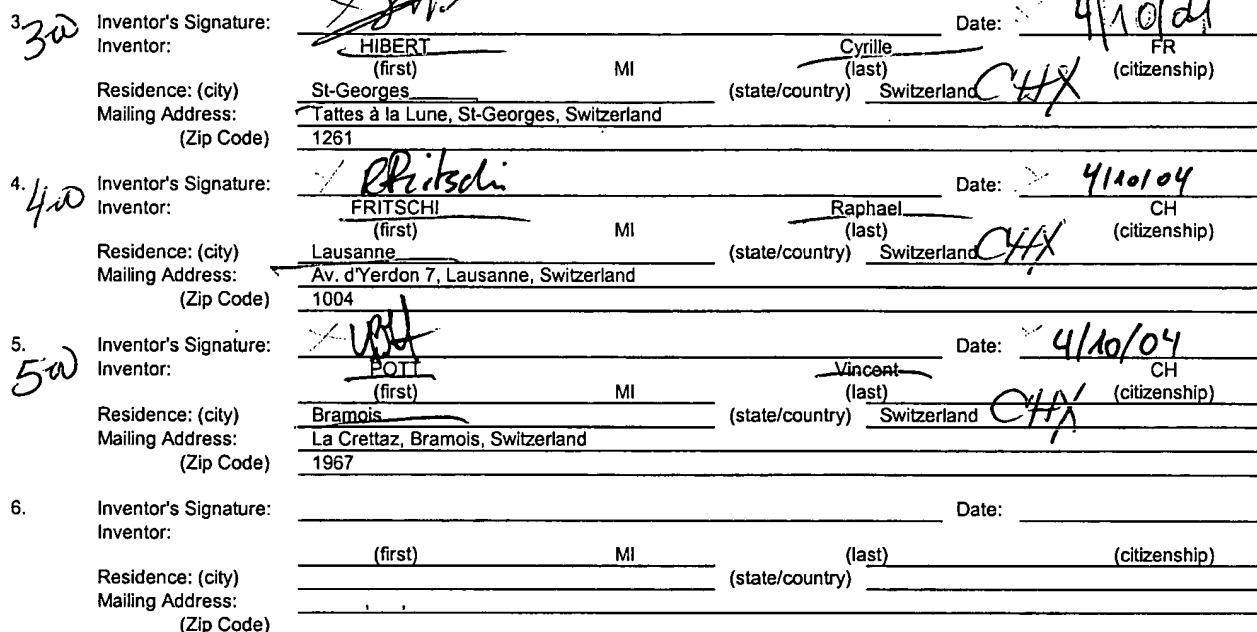 3. Inventor's Signature: Date: 4/10/04
300 Inventor: HIBERT Cyrille FR
(first) MI (last) (citizenship)
Residence: (city) St-Georges (state/country) Switzerland CHX
Mailing Address: Tattes à la Lune, St-Georges, Switzerland
(Zip Code) 1261
4. Inventor's Signature: RFritschi Date: 4/10/04
400 Inventor: FRITSCHI Raphael CH
(first) MI (last) (citizenship)
Residence: (city) Lausanne (state/country) Switzerland CHX
Mailing Address: Av. d'Yerdon 7, Lausanne, Switzerland
(Zip Code) 1004
5. Inventor's Signature: Date: 4/10/04
500 Inventor: POTT Vincent CH
(first) MI (last) (citizenship)
Residence: (city) Bramois (state/country) Switzerland CHX
Mailing Address: La Crettaz, Bramois, Switzerland
(Zip Code) 1967
6. Inventor's Signature: Date:
Inventor:
(first) MI (last) (citizenship)
Residence: (city) (state/country)
Mailing Address: , ,
(Zip Code)